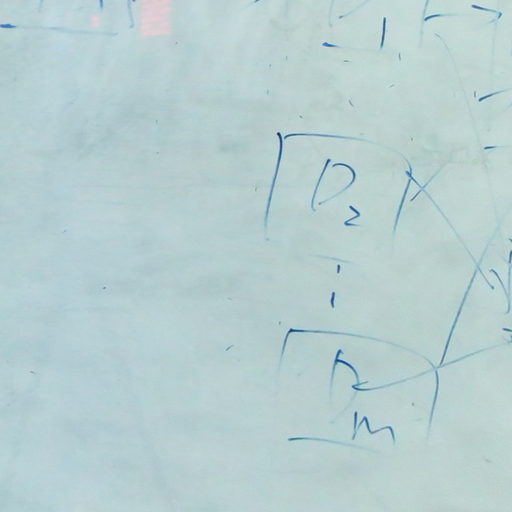 1
D2
⋮
Dm